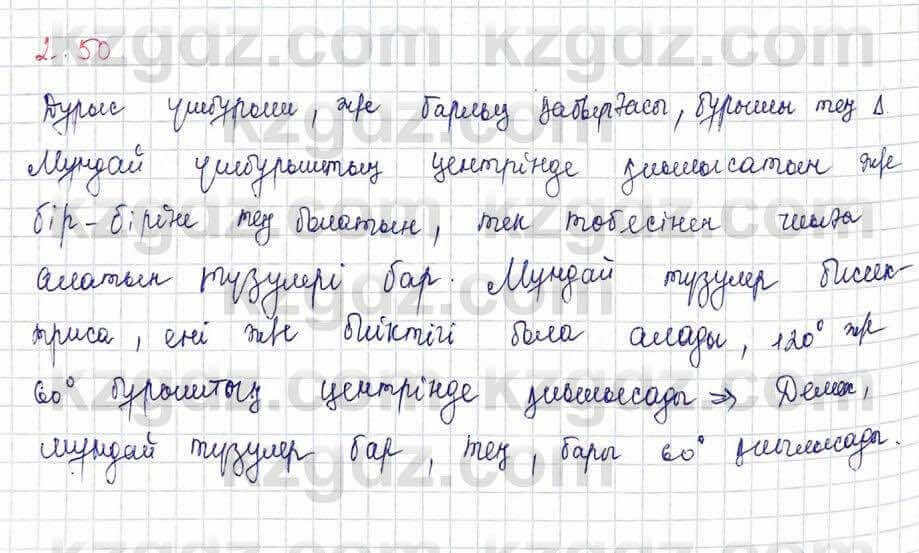 2.50
kzgdz.com kzgdz.com
Дұрыс үшбұрыш, және барлық қабырғасы, бұрышы тең Δ
Мұндай үшбұрыштың центрінде қиылысатын және
бір-біріне тең болатын, тек төбесінен шыға
алатын түзулері бар. Мұндай түзулер биссек-
триса, ені және биіктігі бола алады, 120° және
60° бұрыштың центрінде қиылысады ⇒ Демек,
мұндай түзулер бар, тең, бәрі 60° қиылысады.